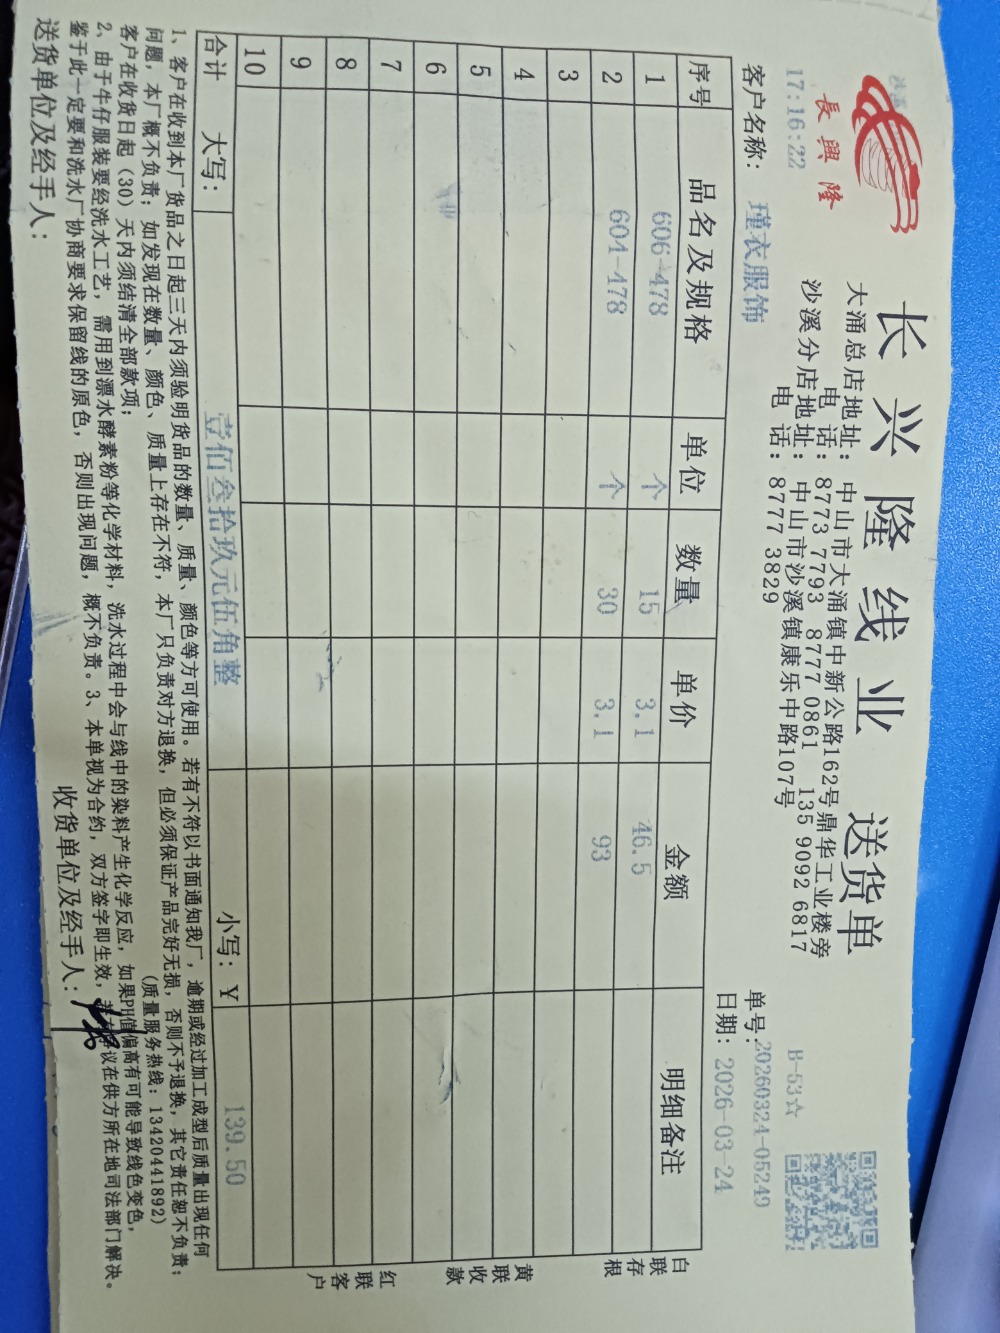 长兴隆线业 送货单
長興隆
17:16:22
大涌总店地址：中山市大涌镇中新公路162号鼎华工业楼旁
电 话：8773 7793 8777 0861 135 9092 6817
沙溪分店地址：中山市沙溪镇康乐中路107号
电 话：8777 3829
B-53☆
单号：20260324-05249
客户名称：瑾衣服饰
日期：2026-03-24
序号 品名及规格 单位 数量 单价 金额 明细备注
1 606-478 个 15 3.1 46.5
2 604-478 个 30 3.1 93
3
4
5
6
7
8
9
10
合计 大写：壹佰叁拾玖元伍角整 小写：¥ 139.50
白联存根
黄联收款
红联客户
1、客户在收到本厂货品之日起三天内须验明货品的数量、质量、颜色等方可使用。若有不符以书面通知我厂，逾期或经过加工成型后质量出现任何
问题，本厂概不负责；如发现在数量、颜色、质量上存在不符，本厂只负责对方退换，但必须保证产品完好无损，否则不予退换，其它责任恕不负责；
客户在收货日起（30）天内须结清全部款项；
（质量服务热线：13420441892）
2、由于牛仔服装要经洗水工艺，需用到漂水酵素粉等化学材料，洗水过程中会与线中的染料产生化学反应，如果PH值偏高有可能导致线色变色，
鉴于此一定要和洗水厂协商要求保留线的原色，否则出现问题，概不负责。3、本单视为合约，双方签字即生效，议在供方所在地司法部门解决。
送货单位及经手人：
收货单位及经手人：